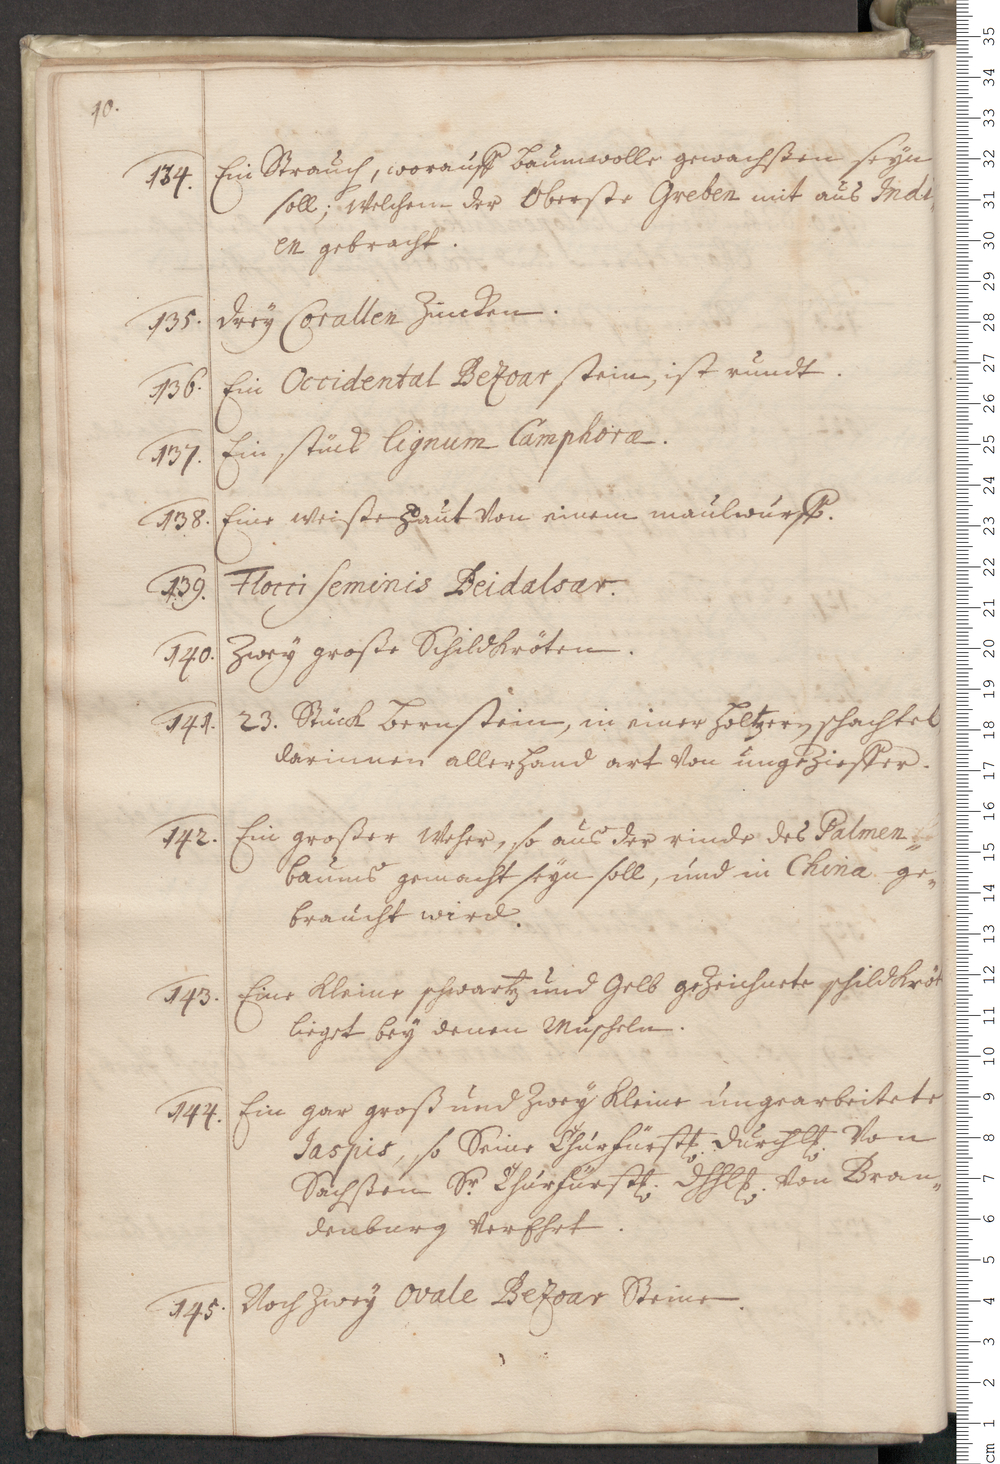 10.
134. Ein Strauch, worauff baumwolle gewachßen seÿn
soll; Welchem der Oberste Greben mit aus Indi-
en gebracht.
135. dreÿ Corallen Zincken.
136. Ein Occidental Bezoar stein, ist rundt.
137. Ein stück lignum Camphoræ.
138. Eine weiße Haut Von einem maulwurff.
139. Flocci seminis Beidalsar.
140. Zweÿ große Schildkröten.
141. 23. Stück bernstein, in einer höltzern schachtel
darinnen allerhand art Von ungeziesser.
142. Ein großer Weher, so aus der rinde des Palmen
baums gemacht seÿn soll, und in China ge-
braucht wird.
143. Eine kleine schwartz und Gelb gezeichnete schildkröt
lieget beÿ denen Muscheln.
144. Ein gar groß und Zweÿ kleine ungearbeitete
Jaspis, so Seine Churfürstl. Durchl. Von
Sachßen Sr. Churfürstl. Dhhl. Von Bran-
denburg Verehrt.
145. Noch Zweÿ Ovale Bezoar Steine.
cm 1 2 3 4 5 6 7 8 9 10 11 12 13 14 15 16 17 18 19 20 21 22 23 24 25 26 27 28 29 30 31 32 33 34 35